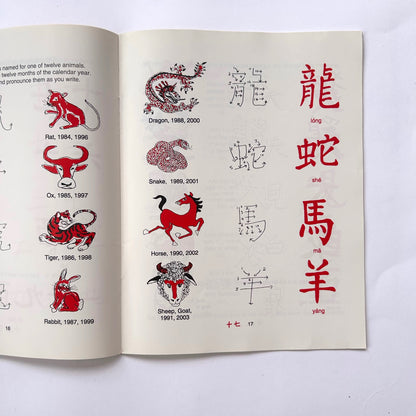 named for one of twelve animals.
twelve months of the calendar year.
nd pronounce them as you write.
Rat, 1984, 1996
Ox, 1985, 1997
Tiger, 1986, 1998
Rabbit, 1987, 1999
16
Dragon, 1988, 2000
龍
龍
lóng
Snake, 1989, 2001
蛇
蛇
shé
Horse, 1990, 2002
馬
馬
mǎ
Sheep, Goat,
1991, 2003
羊
羊
yáng
十七 17